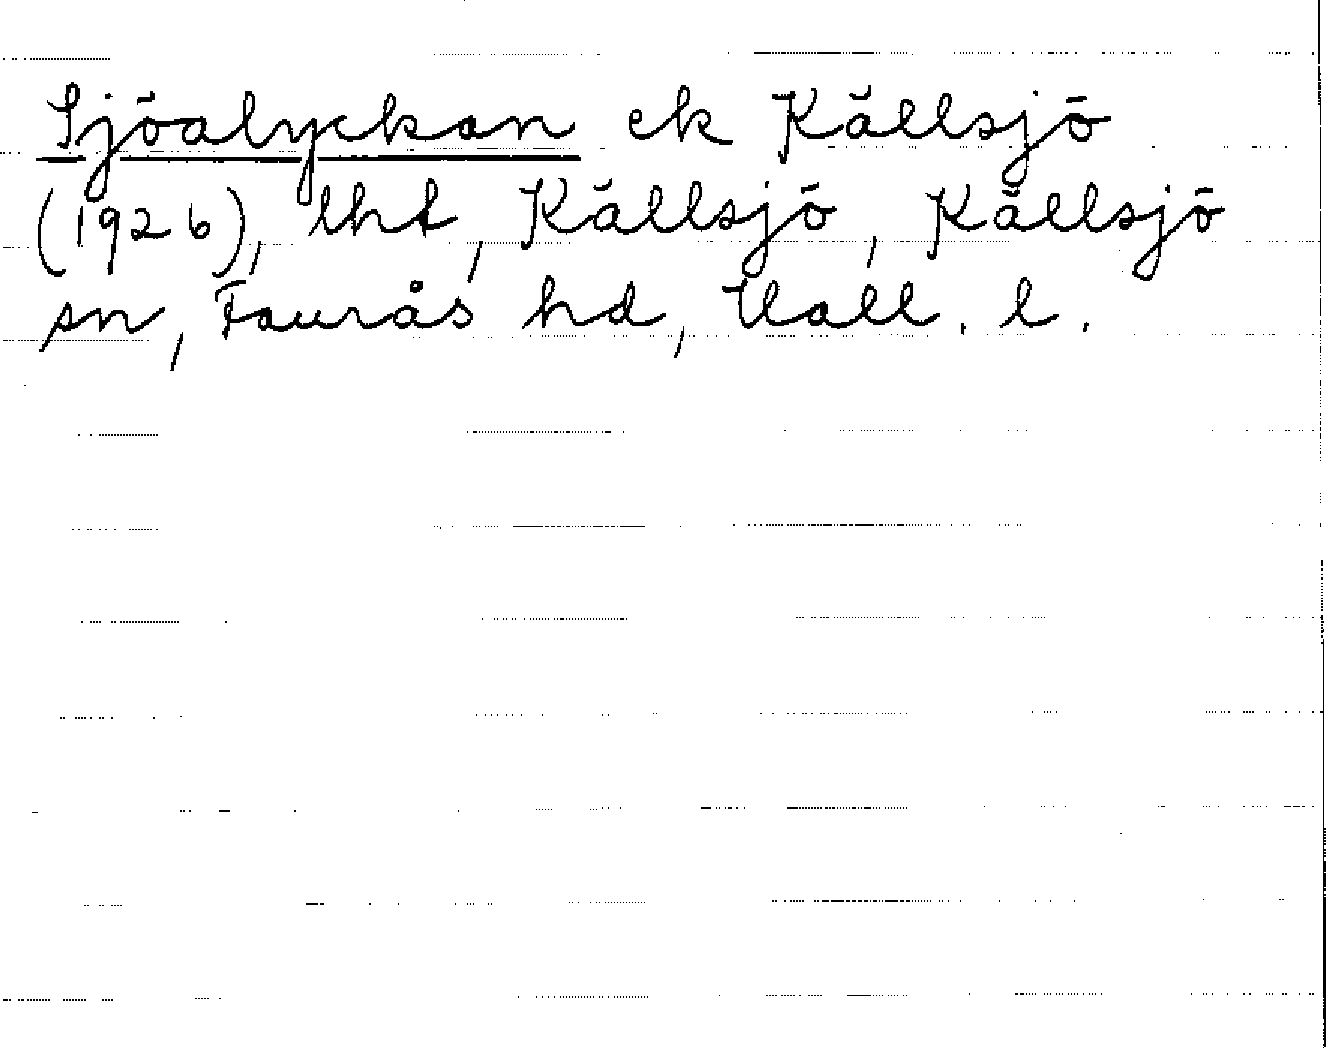 Sjöalyckan ek Källsjö
(1926), lht, Källsjö, Källsjö
sn, Faurås hd, Hall. l.